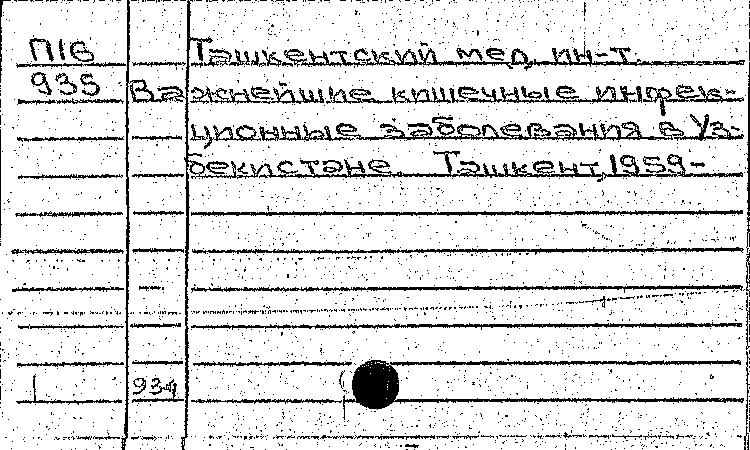 П16 Ташкентский мед. ин-т.
935 Важнейшие кишечные инфек-
ционные заболевания в Уз-
бекистане. Ташкент, 1959-
1 934